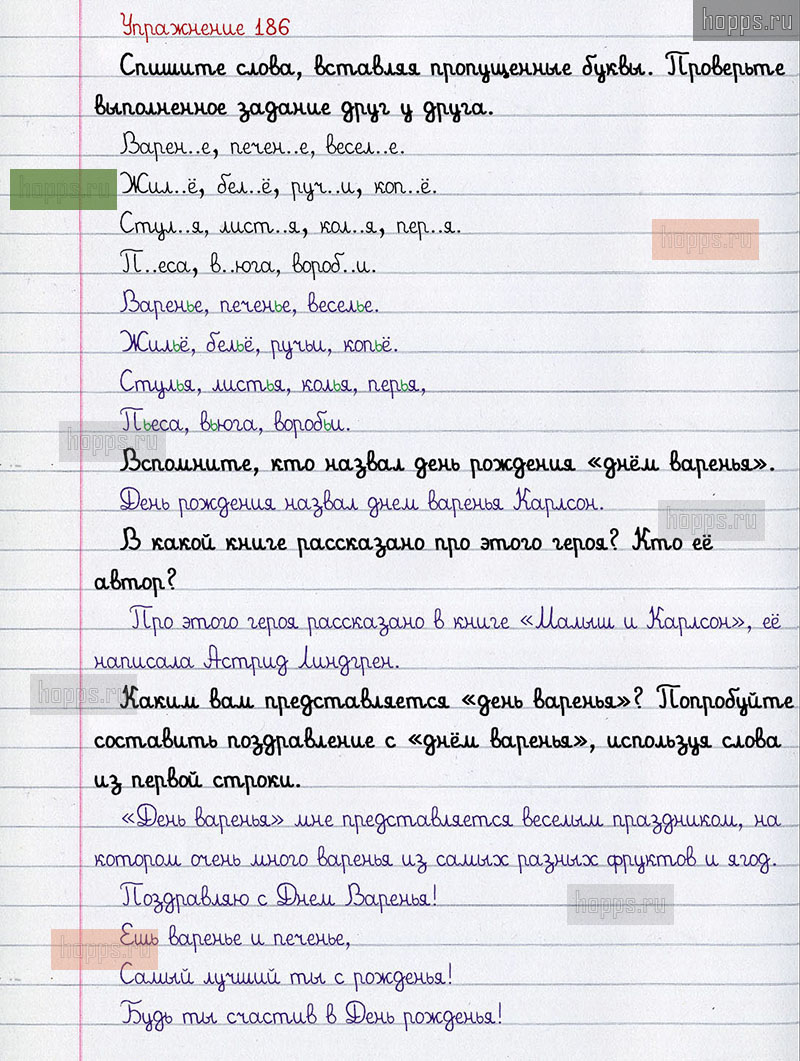 hopps.ru
Упражнение 186
Спишите слова, вставляя пропущенные буквы. Проверьте
выполненное задание друг у друга.
Варен..е, печен..е, весел..е.
hopps.ru
Жил..ё, бел..ё, руч..и, коп..ё.
Стул..я, лист..я, кол..я, пер..я.
hopps.ru
П..еса, в..юга, вороб..и.
Варенье, печенье, веселье.
Жильё, бельё, ручьи, копьё.
Стулья, листья, колья, перья,
Пьеса, вьюга, воробьи.
hopps.ru
Вспомните, кто назвал день рождения «днём варенья».
День рождения назвал днем варенья Карлсон.
hopps.ru
В какой книге рассказано про этого героя? Кто её
автор?
Про этого героя рассказано в книге «Малыш и Карлсон», её
написала Астрид Линдгрен.
hopps.ru
Каким вам представляется «день варенья»? Попробуйте
составить поздравление с «днём варенья», используя слова
из первой строки.
«День варенья» мне представляется веселым праздником, на
котором очень много варенья из самых разных фруктов и ягод.
Поздравляю с Днем Варенья!
hopps.ru
Ешь варенье и печенье,
hopps.ru
Самый лучший ты с рожденья!
Будь ты счастив в День рожденья!